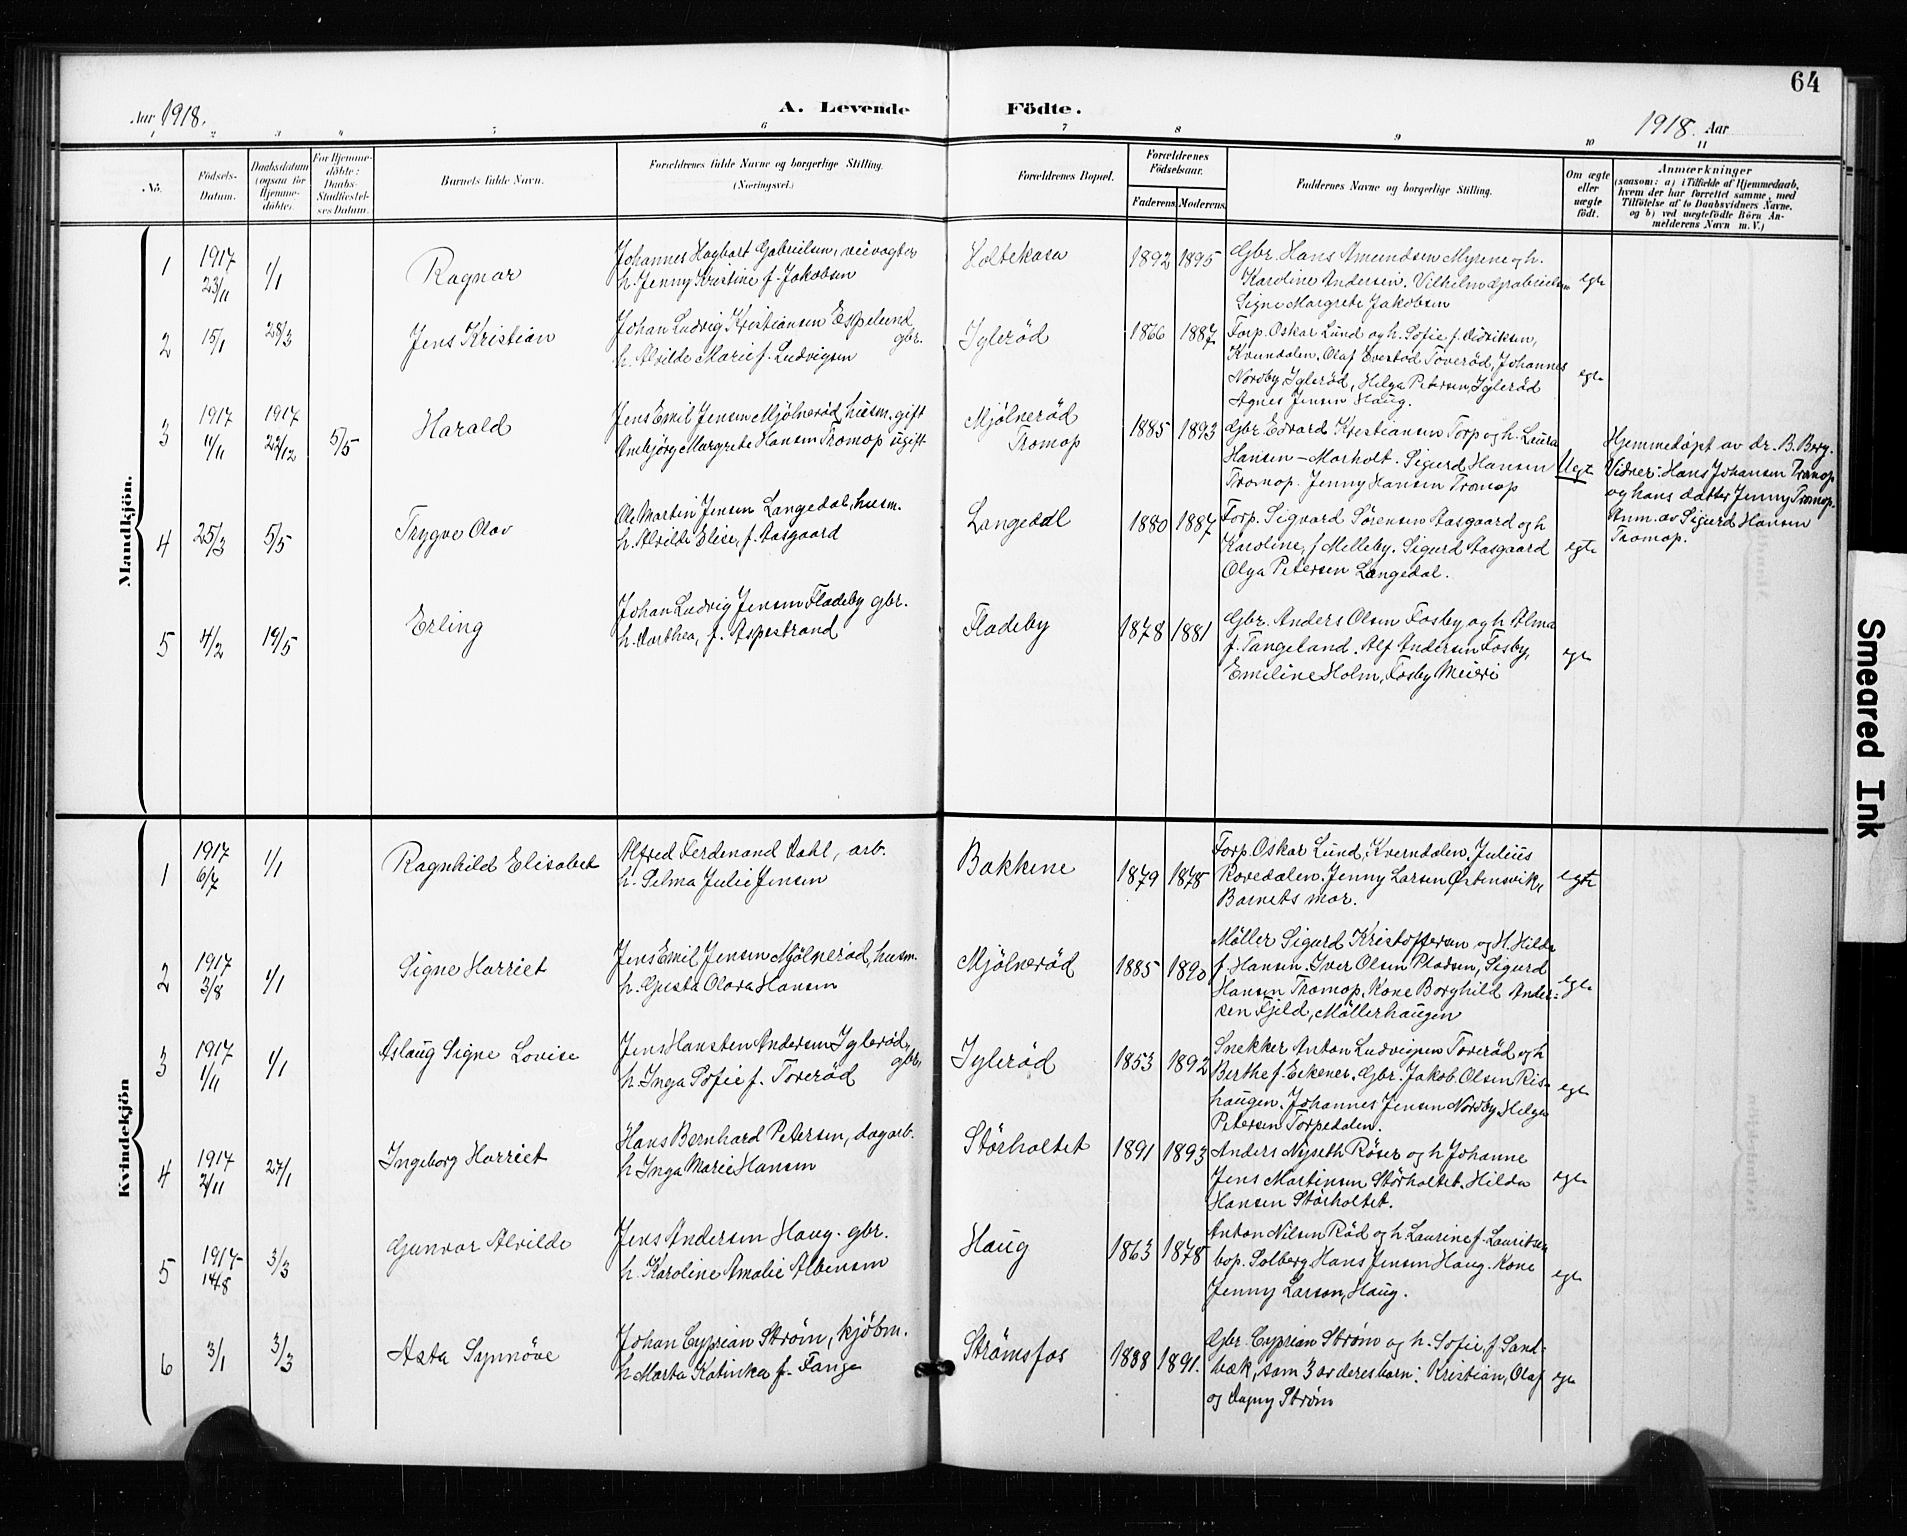 64
Aar 1918.
A. Levende Födte.
1918. Aar
1 2 3 4 5 6 7 8 9 10 11
No.
Födsels-Datum.
Daabsdatum (ogsaa for Hjemme-döbte).
For Hjemme-döbte: Daabs-Stadfæstel-ses Datum.
Barnets fulde Navn.
Forældrenes fulde Navne og borgerlige Stilling.
(Næringsvei.)
Forældrenes Bopæl.
Forældrenes Födselsaar.
Faderens. Moderens.
Faddernes Navne og borgerlige Stilling.
Om ægte eller uægte födt.
Anmærkninger
(saasom: a) i Tilfælde af Hjemmedaab,
hvem der har forrettet samme, med
Tilföielse af to Daabsvidners Navne.
og b) ved uægtefödte Börn An-
melderens Navn m. V.)
Mandkjön.
1
1917
23/11
1/1
Ragnar
Johannes Hagbart Gabrielsen, veivogter
h. Jenny Kristine f. Jakobsen
Holtekasa
1892 1895
Gbr. Hans Amundsen Myrene og h.
Karoline Andersen. Vilhelm Gabrielsen
Signe Margrete Jakobsen
egte
2
15/1
28/3
Jens Kristian
Johan Ludvig Kristiansen Espelund
gbr.
h. Alvilde Marie f. Ludvigsen
Iglerød
1866 1887
Forp. Oskar Lund og h. Sofie f. Didriksen,
Kverndalen, Olaf Torerød, Johannes
Nordby Iglerød, Helga Petersen, Iglerød
Agnes Jensen Haug.
egte
3
1917
11/11
1917
22/12
5/5
Harald
Jens Emil Jensen Mjölnerød, husm. gift
Margrete Hansen Tromop ugift
Mjölnerød
Tromop
1885 1893
Gbr. Edvard Kristiansen Torp og h. Laura
Hansen - Marholt. Sigurd Hansen
Tromop. Jenny Hansen Tromop
Uegte
Hjemmedøpt av dr. B. Berg.
Vidner: Hans Johansen Tromop
og hans datter Jenny Tromop.
Anm. av Sigurd Hansen
Tromop.
4
25/3
5/5
Trygve Olav
Ole Martin Jensen Langedal, husm.
h. Alvilde Elise, f. Aasgaard
Langedal
1880 1887
Forp. Sigvard Sørensen Aasgaard og h
Karoline, f Melleby. Sigurd Aasgaard
Olga Petersen Langedal.
egte
5
4/2
19/5
Erling
Johan Ludvig Jensen Fladeby gbr.
h. Dorthea, f. Aspestrand
Fladeby
1878 1881
Gbr. Anders Olsen Fosby og h Alma
f. Tangeland. Alf Andersen Fosby,
Emeline Holm, Fosby Meieri
egte
Kvindekjön
1
1917
6/7
1/1
Ragnhild Elisabet
Alfred Ferdinand Dahl, arb.
h. Selma Julie Jensen
Bakkene
1879 1878
Forp. Oskar Lund, Kverndalen. Julius
Rovedalen. Jenny Larsen Østensvik,
Barnets mor.
egte
2
1917
3/8
1/1
Signe Harriet
Jens Emil Jensen Mjölnerød, husm.
h. Gusta Olava Hansen
Mjölnerød
1885 1890
Möller Sigurd Kristoffersen og h. Hilda
f. Hansen. Iver Olsen, Sigurd
Hansen Tromop, Kone Borghild Ander-
sen Fjeld, Möllerhaugen
egte
3
1917
1/11
1/1
Aslaug Signe Lovise
Jens Hansten Andersen Iglerød,
gbr.
h. Inga Sofie f. Torerød
Iglerød
1853 1892
Snekker Anton Ludvigsen Torerød og h
Berthe f. Eekenes. Gbr. Jakob Olsen Ris-
haugen. Johannes Jensen Nordby. Helga
Petersen Torpedalen.
egte
4
1917
2/11
27/1
Ingeborg Harriet
Hans Bernhard Petersen, dagarb.
h Inga Marie Hansen
Størholtet
1891 1893
Anders Nyseth Röser og h Johanne
Jens Martinsen Störholtet. Hilda
Hansen Störholtet.
egte
5
1917
14/8
3/3
Gunvor Alvilde
Jens Andersen Haug. gbr.
h. Karoline Amalie Albensen
Haug
1863 1878
Anton Nilsen Rød og h Laurine f. Lauritsen
bop. Solberg. Hans Jensen Haug. Kone
Jenny Larson, Haug.
egte
6
3/1
3/3
Asta Synnöve
Johan Cyprian Strøm, kjøbm.
h Marta Katinka f. Fange
Strømsfos
1888 1891.
Gbr. Cyprian Strøm og h. Sofie, f. Sand-
bæk, sam 3 av deres barn: Kristian, Olaf
og Dagny Strøm
egte
Smeared Ink